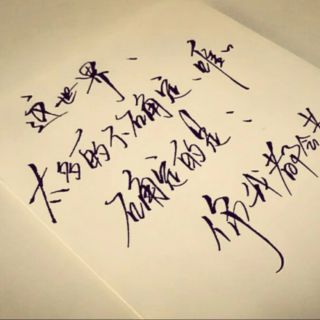 这世界、
太多的不确定、唯一
确定的是：
你我都会老